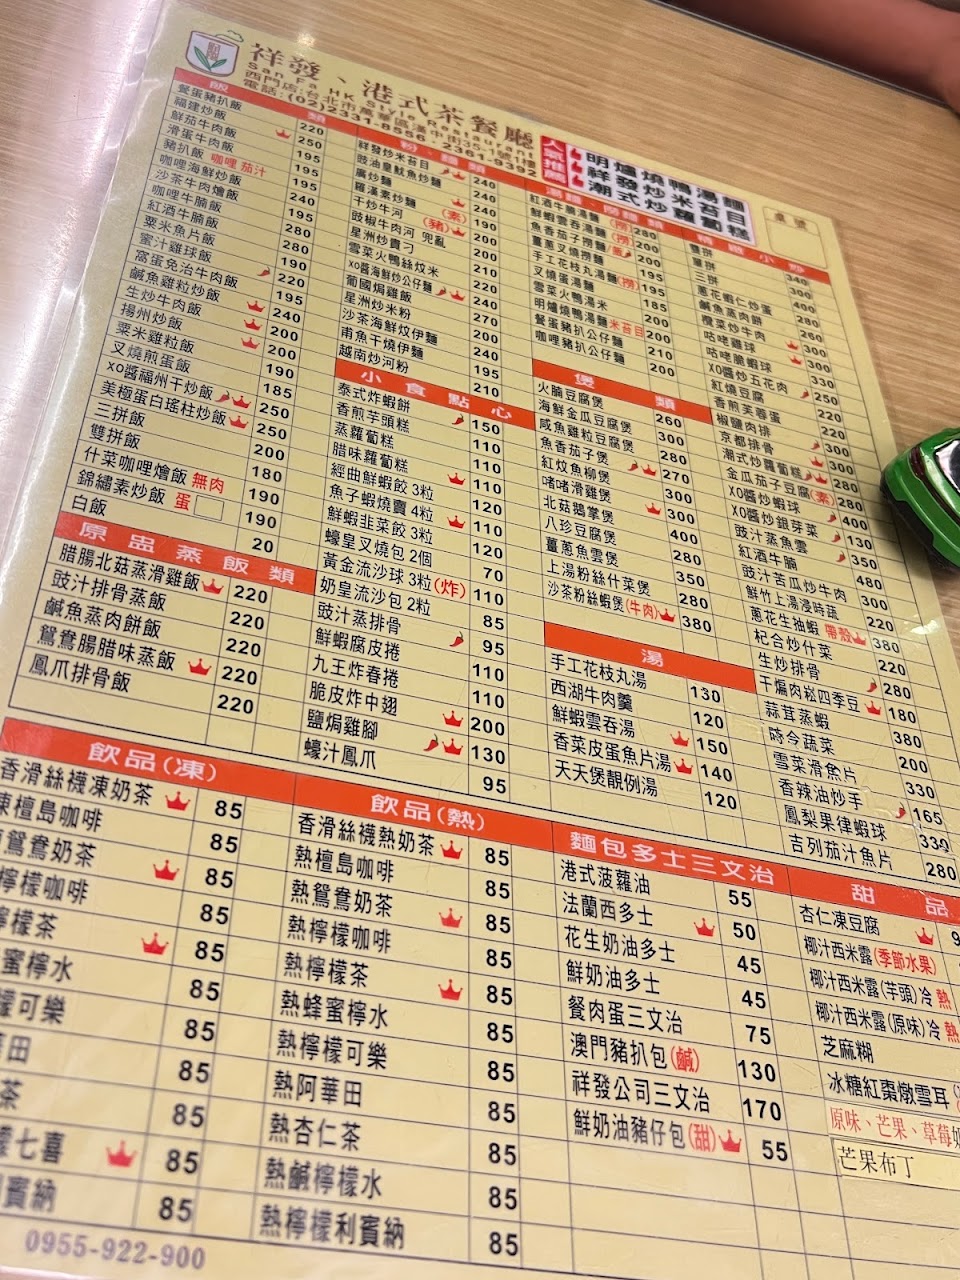 祥發、港式茶餐廳
San Fa HK Style Restaurant
西門店:台北市萬華區漢中街35-1號1樓
電話:(02)2331-8556・2361-9392
人氣推薦
明爐燒鴨湯麵
祥發炒米苔目
潮式炒蘿蔔糕
桌號
飯類
餐蛋豬扒飯 220
福建炒飯 250
鮮茄牛肉飯 195
滑蛋牛肉飯 195
豬扒飯 咖哩 茄汁 195
咖哩海鮮炒飯 240
沙茶牛肉燴飯 195
咖哩牛腩飯 280
紅酒牛腩飯 280
粟米魚片飯 190
蜜汁雞球飯 220
窩蛋免治牛肉飯 195
鹹魚雞粒炒飯 240
生炒牛肉飯 200
揚州炒飯 200
粟米雞粒飯 190
叉燒煎蛋飯 185
XO醬福州干炒飯 250
美極蛋白瑤柱炒飯 250
三拼飯 200
雙拼飯 180
什菜咖哩燴飯 無肉 190
錦繡素炒飯 蛋 190
白飯 20
原盅蒸飯類
腊腸北菇蒸滑雞飯 220
豉汁排骨蒸飯 220
鹹魚蒸肉餅飯 220
鴛鴦腸腊味蒸飯 220
鳳爪排骨飯 220
粉、麵類
祥發炒米苔目 240
豉油皇魷魚炒麵 240
廣炒麵 240
羅漢素炒麵 (素) 200
干炒牛河 (豬) 200
豉椒牛肉河 兜亂 200
星洲炒貴刁 210
雪菜火鴨絲炆米 220
XO醬海鮮炒公仔麵 240
葡國焗雞飯 270
星洲炒米粉 200
沙茶海鮮炆伊麵 240
甫魚干燒伊麵 195
越南炒河粉 210
小食點心
泰式炸蝦餅 150
香煎芋頭糕 110
蒸蘿蔔糕 110
腊味蘿蔔糕 110
經曲鮮蝦餃 3粒 110
魚子蝦燒賣 4粒 110
鮮蝦韭菜餃 3粒 120
蠔皇叉燒包 2個 70
黃金流沙球 3粒(炸) 110
奶皇流沙包 2粒 85
豉汁蒸排骨 95
鮮蝦腐皮捲 110
九王炸春捲 110
脆皮炸中翅 200
鹽焗雞腳 130
蠔汁鳳爪 95
湯麵、撈麵類
紅酒牛腩湯麵 280
鮮蝦雲吞湯麵 (撈) 200
魚香茄子撈麵 200
薑蔥叉燒撈麵 195
手工花枝丸湯麵(撈) 195
叉燒蛋湯麵 185
雪菜火鴨湯米 200
明爐燒鴨湯麵 米苔目 200
餐蛋豬扒公仔麵 210
咖哩豬扒公仔麵 200
煲類
火腩豆腐煲 260
海鮮金瓜豆腐煲 300
咸魚雞粒豆腐煲 280
魚香茄子煲 270
紅炆魚柳煲 300
啫啫滑雞煲 300
北菇鵝掌煲 400
八珍豆腐煲 280
薑蔥魚雲煲 350
上湯粉絲什菜煲 280
沙茶粉絲蝦煲(牛肉) 380
湯
手工花枝丸湯 130
西湖牛肉羹 120
鮮蝦雲吞湯 150
香菜皮蛋魚片湯 140
天天煲靚例湯 120
精緻小炒
雙拼 340
單拼 300
三拼 400
蔥花蝦仁炒蛋 280
鹹魚蒸肉餅 260
欖菜炒牛肉 300
咕咾雞球 300
咕咾脆蝦球 330
XO醬炒五花肉 250
紅燒豆腐 220
香煎芙蓉蛋 220
椒鹽肉排 300
京都排骨 300
潮式炒蘿蔔糕 280
金瓜茄子豆腐(素) 280
XO醬炒蝦球 400
XO醬炒銀芽菜 130
豉汁蒸魚雲 350
紅酒牛腩 480
豉汁苦瓜炒牛肉 300
鮮竹上湯浸時蔬 220
蔥花生抽蝦 帶殼 380
杞合炒什菜 220
生炒排骨 280
干煸肉崧四季豆 180
蒜茸蒸蝦 380
時令蔬菜 200
雪菜滑魚片 330
香辣油炒手 165
鳳梨果律蝦球 330
吉列茄汁魚片 280
飲品(凍)
香滑絲襪凍奶茶 85
凍檀島咖啡 85
鴛鴦奶茶 85
檸檬咖啡 85
檸檬茶 85
蜜檸水 85
檬可樂 85
田 85
茶 85
檬七喜 85
賓納 85
飲品(熱)
香滑絲襪熱奶茶 85
熱檀島咖啡 85
熱鴛鴦奶茶 85
熱檸檬咖啡 85
熱檸檬茶 85
熱蜂蜜檸水 85
熱檸檬可樂 85
熱阿華田 85
熱杏仁茶 85
熱鹹檸檬水 85
熱檸檬利賓納 85
麵包多士三文治
港式菠蘿油 55
法蘭西多士 50
花生奶油多士 45
鮮奶油多士 45
餐肉蛋三文治 75
澳門豬扒包(鹹) 130
祥發公司三文治 170
鮮奶油豬仔包(甜) 55
甜品
杏仁凍豆腐
椰汁西米露(季節水果)
椰汁西米露(芋頭)冷 熱
椰汁西米露(原味)冷 熱
芝麻糊
冰糖紅棗燉雪耳
原味、芒果、草莓奶
芒果布丁
0955-922-900